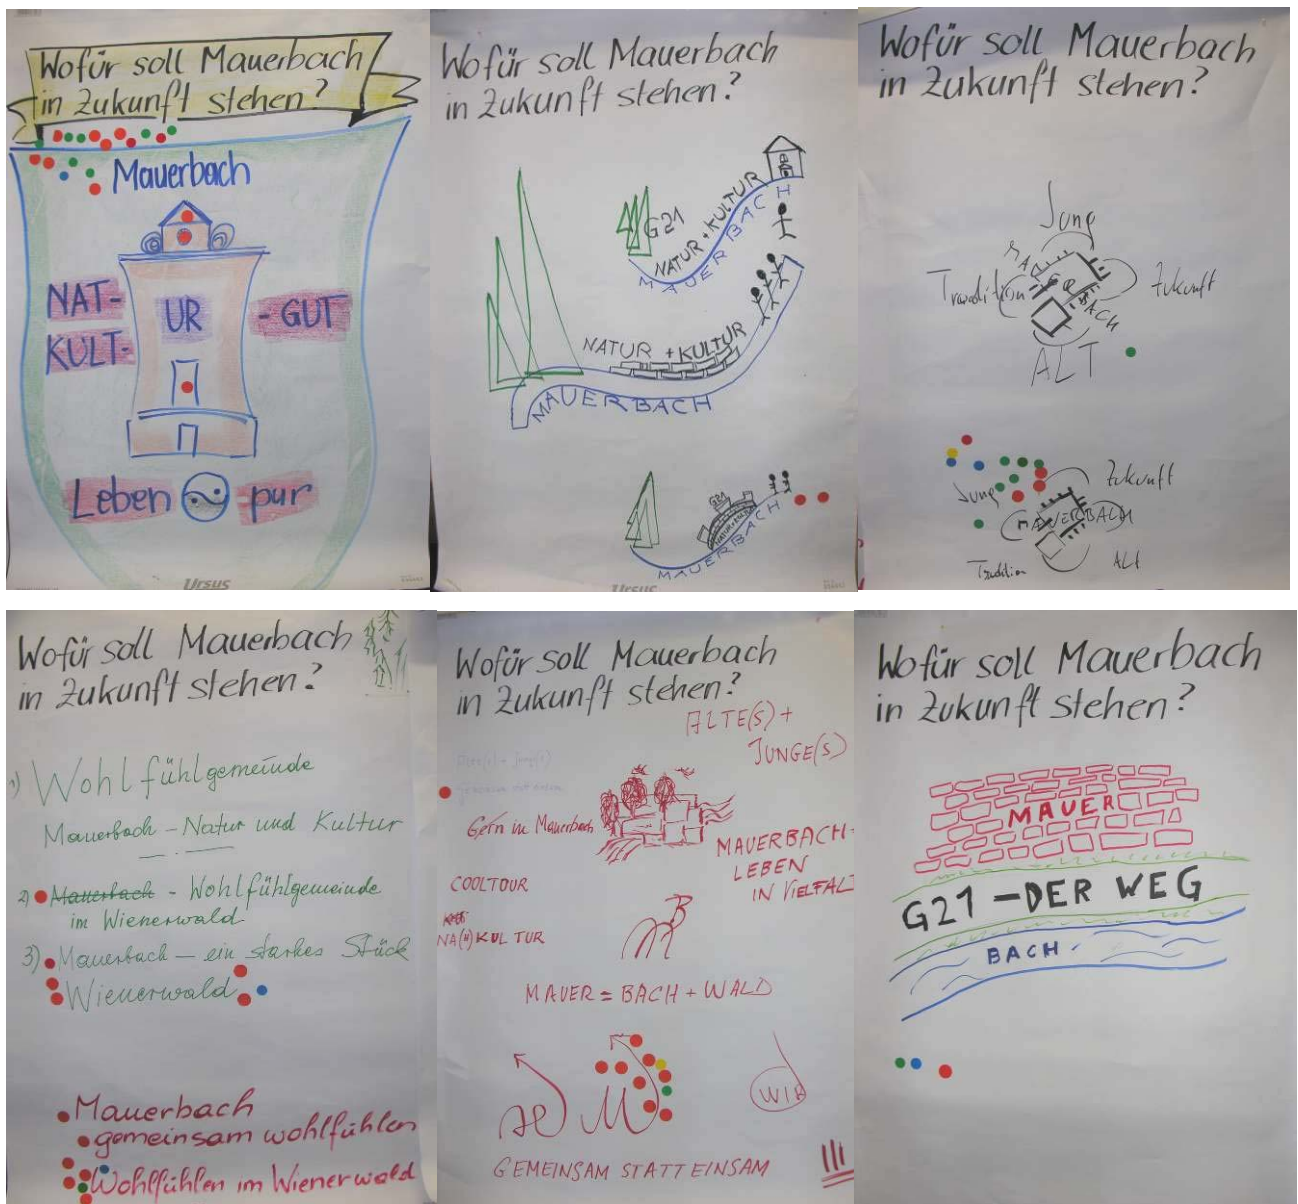 Wofür soll Mauerbach
in Zukunft stehen?
Mauerbach
NAT-
UR
-GUT
KULT-
Leben pur
Ursus
Wofür soll Mauerbach
in Zukunft stehen?
G21
NATUR + KULTUR
MAUERBACH
NATUR + KULTUR
MAUERBACH
G21
MAUERBACH
Ursus
Wofür soll Mauerbach
in Zukunft stehen?
Jung
Zukunft
BACH
ALT
Jung
Zukunft
MAUERBACH
Tradition
ALT
Wofür soll Mauerbach
in Zukunft stehen?
1) Wohlfühlgemeinde
Mauerbach - Natur und Kultur
2) Mauerbach - Wohlfühlgemeinde
im Wienerwald
3) Mauerbach - ein starkes Stück
Wienerwald
Mauerbach
gemeinsam wohlfühlen
Wohlfühlen im Wienerwald
Wofür soll Mauerbach
in Zukunft stehen?
ALTE(S) +
JUNGE(S)
Gern in Mauerbach
MAUERBACH-
LEBEN
IN VIELFALT
COOLTOUR
NA(H)KULTUR
MAUER = BACH + WALD
WIR
GEMEINSAM STATT EINSAM
Wofür soll Mauerbach
in Zukunft stehen?
MAUER
G21 - DER WEG
BACH